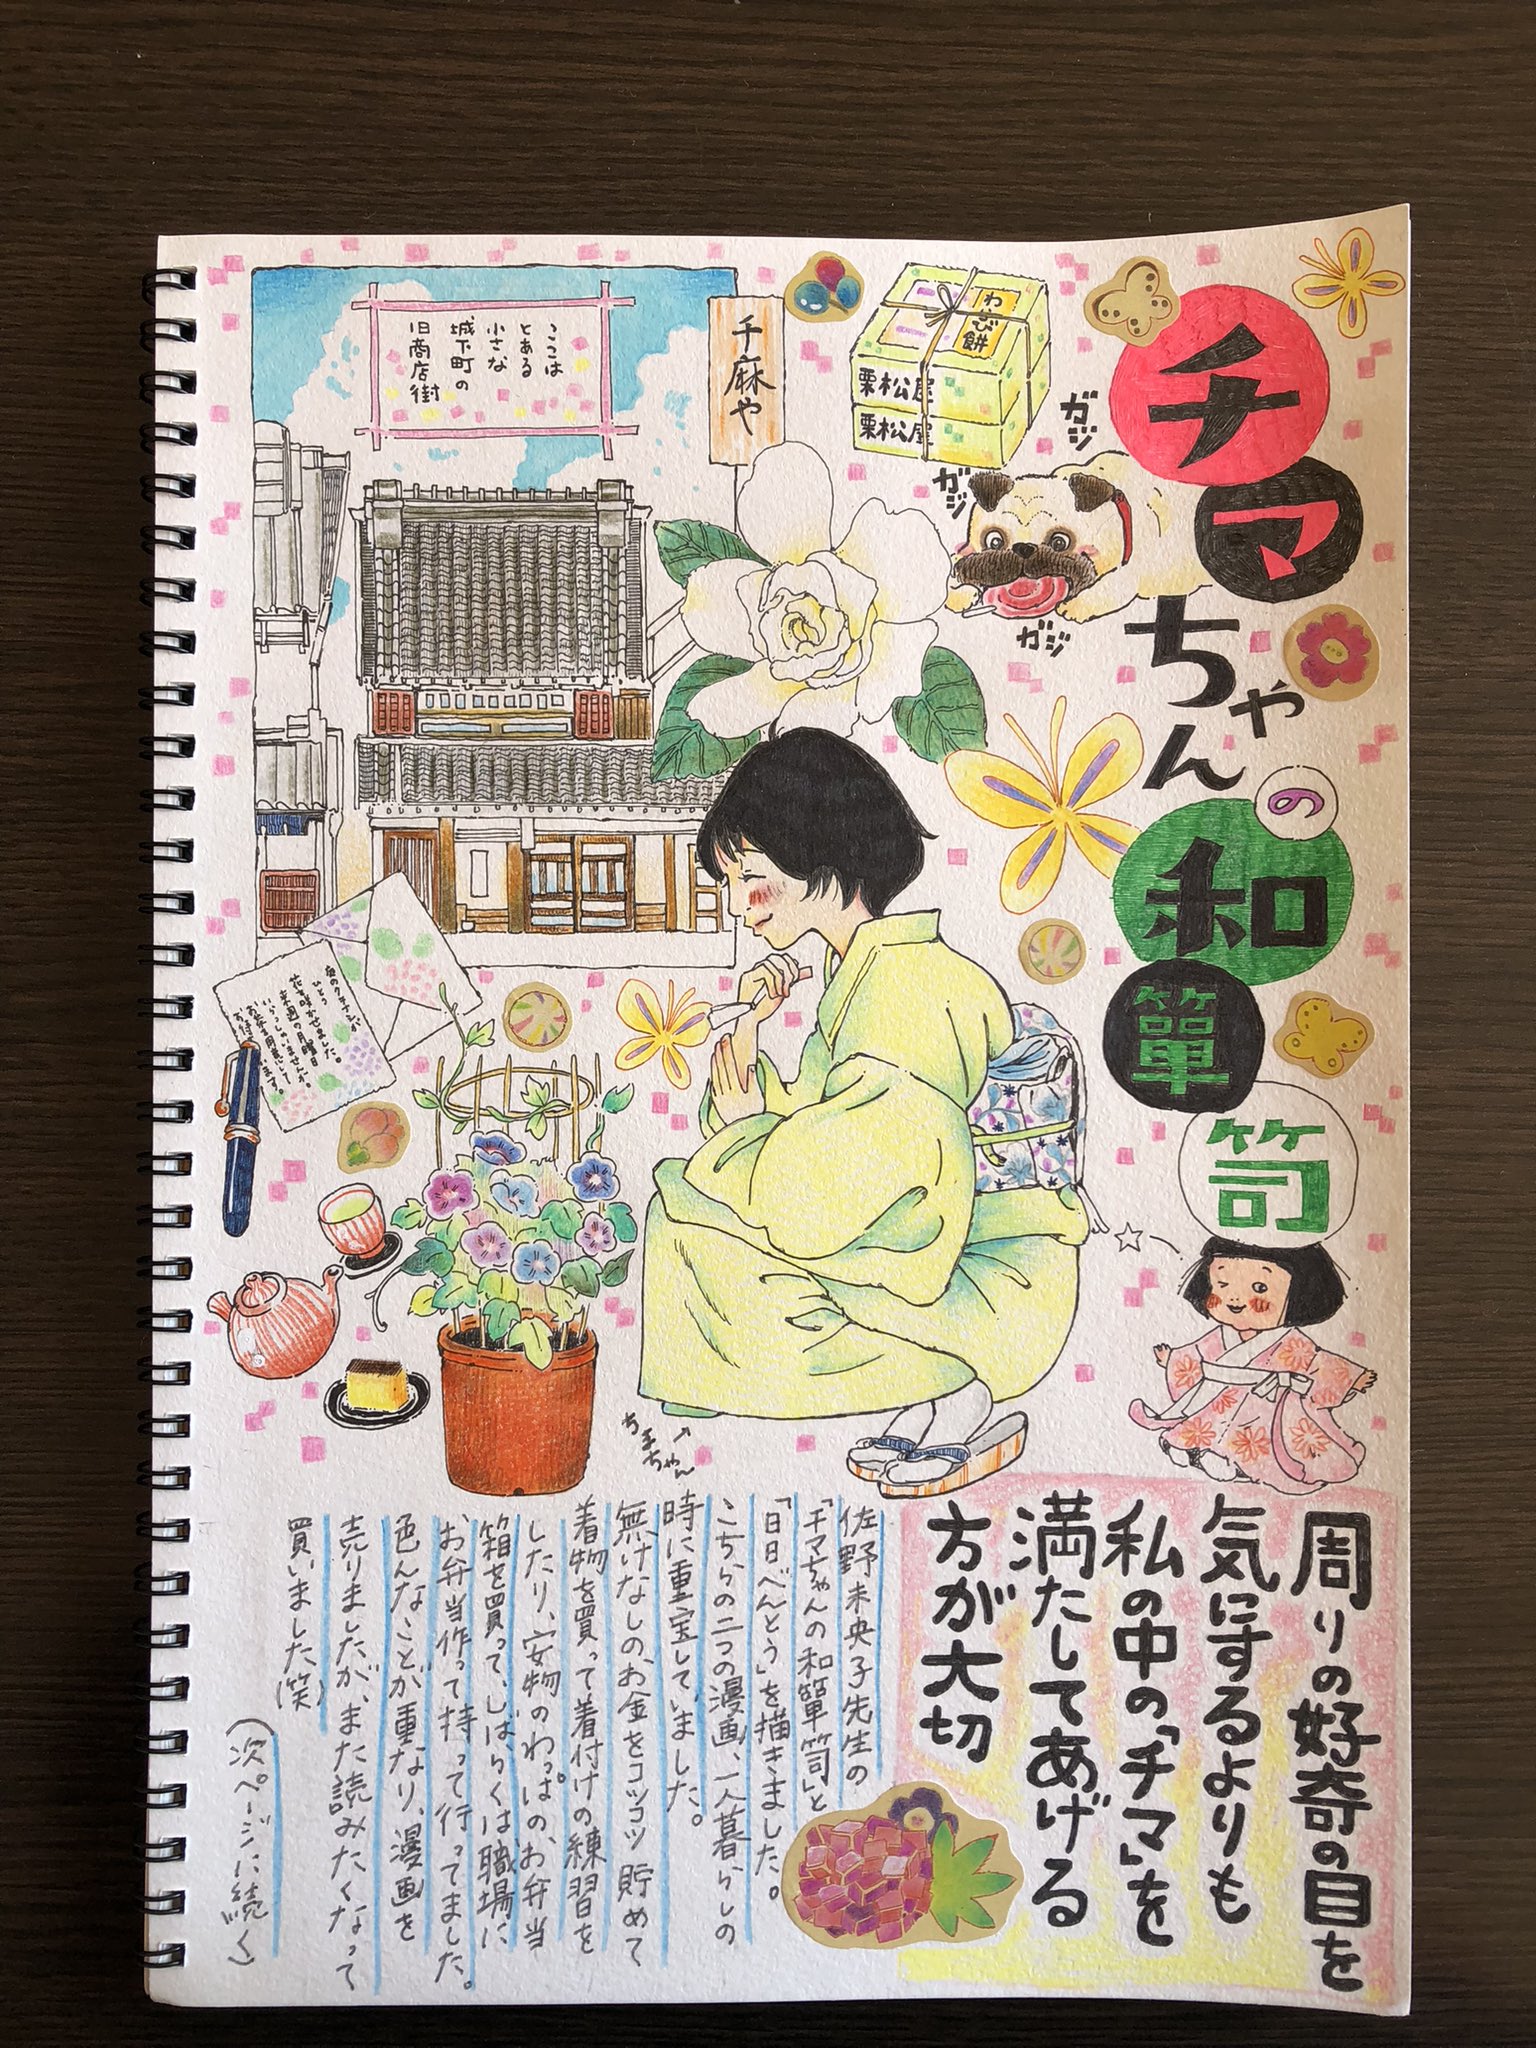 チマちゃんの和箪笥
ここは
とある
小さな
城下町の
旧商店街
千麻や
わらび餅
栗松屋
栗松屋
ガジ
ガジ
ガジ
庭のクチナシが
ひとつ
花を咲かせました。
来週の月曜日
いらっしゃいませんか。
お茶を用意して
お待ちしています。
ちまちゃん
周りの好奇の目を
気にするよりも
私の中の「チマ」を
満たしてあげる
方が大切
佐野未央子先生の
「チマちゃんの和箪笥」と
「日日べんとう」を描きました。
こちらの二つの漫画、一人暮らしの
時に重宝していました。
無けなしのお金をコツコツ貯めて
着物を買って着付けの練習を
したり、安物のわっぱのお弁当
箱を買って、しばらくは職場に
お弁当作って持って行ってました。
色んなことが重なり、漫画を
売りましたが、また読みたくなって
買いました(笑)
(次ページに続く)